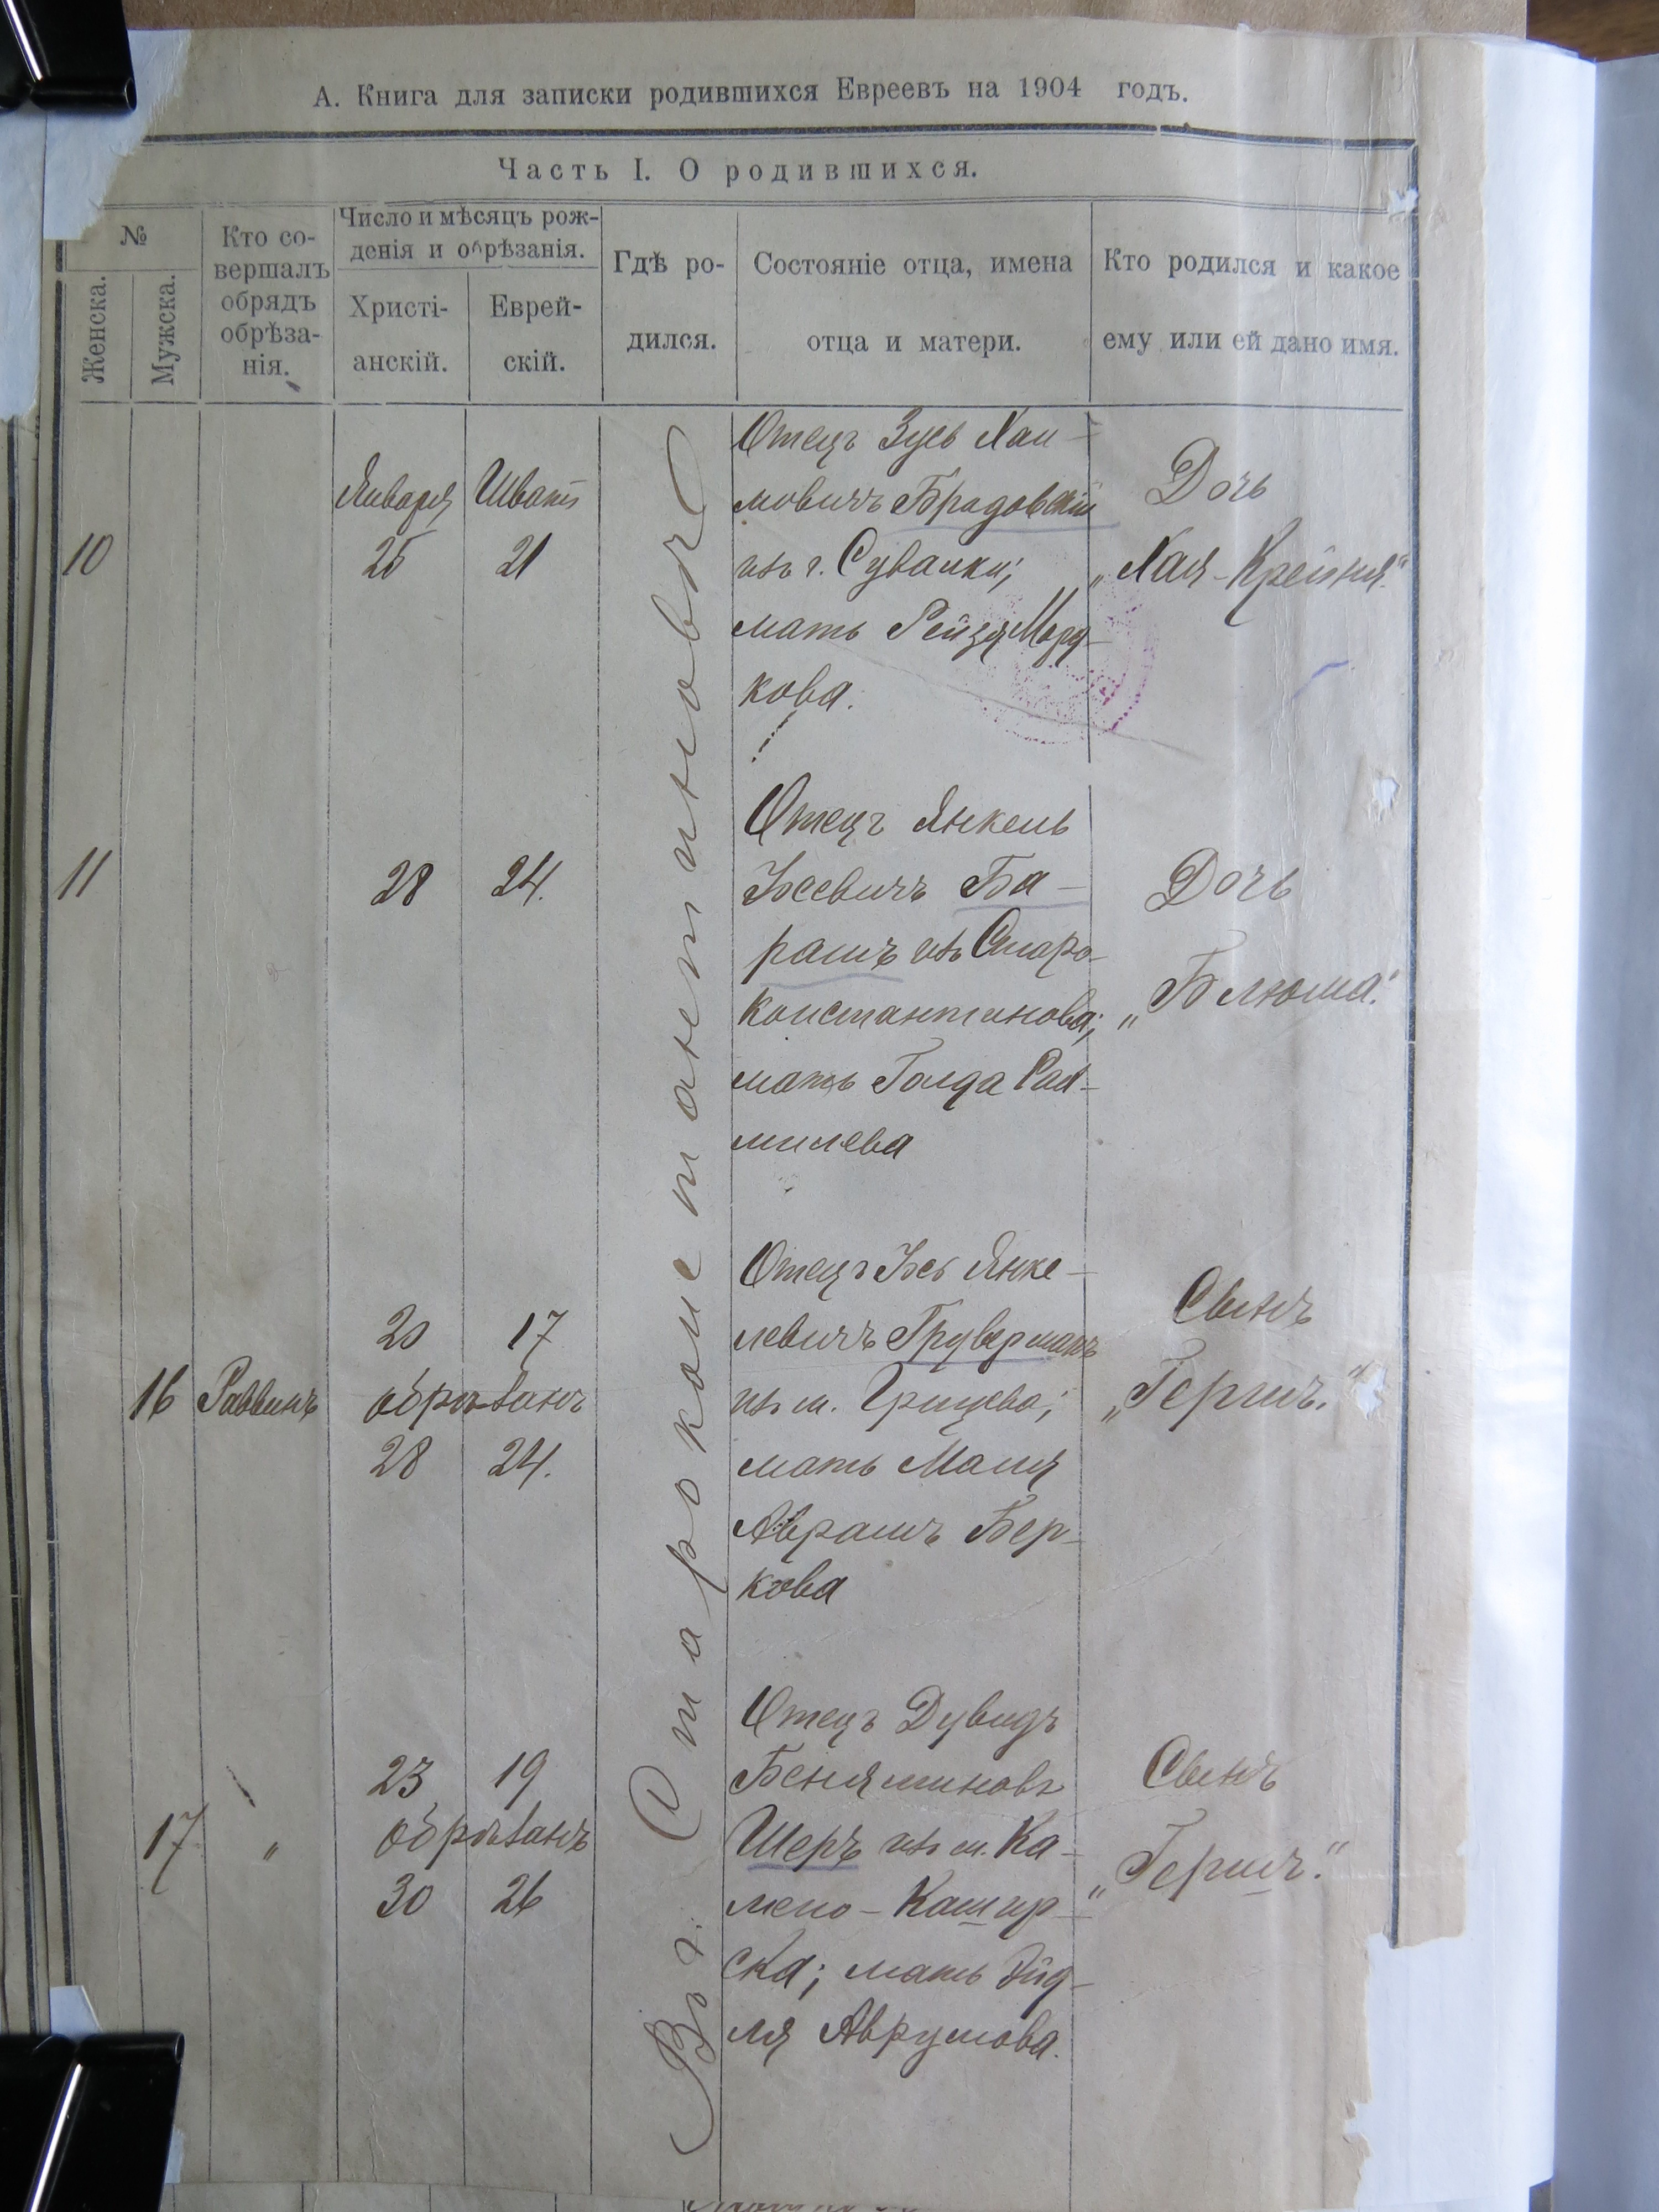 А. Книга для записки родившихся Евреевъ на 1904 годъ.
Часть I. О родившихся.
№
Женска.
Мужска.
Кто со-
вершалъ
обрядъ
обрѣза-
нія.
Число и мѣсяцъ рож-
денія и обрѣзанія.
Христі-
анскій.
Еврей-
скій.
Гдѣ ро-
дился.
Состояніе отца, имена
отца и матери.
Кто родился и какое
ему или ей дано имя.
Въ г. Староконстантиновѣ
10
Января
25
Шватъ
21
Отецъ Зусь Хаи-
мовичъ Брадовскій
изъ г. Сувалки;
мать Рейзя Морд-
кова.
Дочь
„Хая-Крейня“
11
28
24.
Отецъ Янкель
Іосевичъ Ба-
рашъ изъ Старо-
константинова;
мать Голда
милева
Дочь
„Блюма“
16
Раввинъ
20
17
обрѣзанъ
28
24.
Отецъ Іось Янке-
левичъ Груверманъ
изъ м. Грицева;
мать Маля
Аврамъ Бер-
кова
Сынъ
„Гершъ.“
17
„
23
19
обрѣзанъ
30
26
Отецъ Дувидъ
Беняминовъ
Шеръ изъ м. Ка-
мено-Кашир-
ска; мать Эйд-
ля Аврумова.
Сынъ
„Гершъ.“